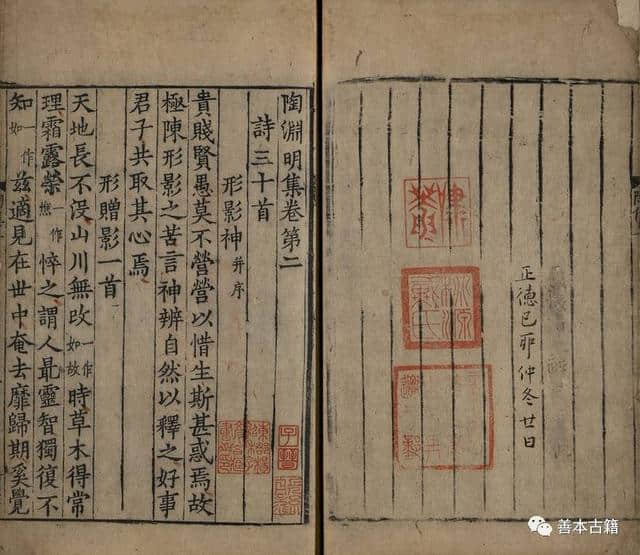 正德己卯仲冬廿日
陶淵明集卷第二
詩三十首
形影神并序
貴賤賢愚莫不營營以惜生斯甚惑焉故
極陳形影之苦言神辨自然以釋之好事
君子共取其心焉
形贈影一首
天地長不没山川無改一作如故時草木得常
理霜露榮一作憔悴之謂人最靈智獨復不
知一作如兹適見在世中奄去靡歸期奚覺
善本古籍